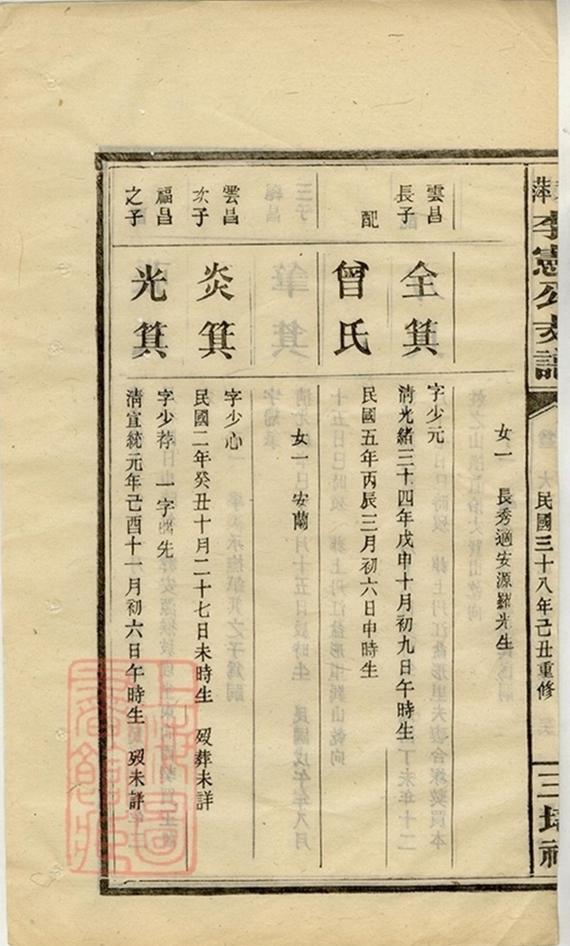 李憲公支譜
民國三十八年己丑重修
女一 長秀適安源羅光生
雲昌
長子
全箕
字少元
清光緒三十四年戊申十月初九日午時生
配
曾氏
民國五年丙辰三月初六日申時生
女一 安蘭
雲昌
次子
炎箕
字少心
民國二年癸丑十月二十七日未時生 歿葬未詳
福昌
之子
光箕
字少荐 一字 先
清宣統元年己酉十一月初六日午時生 歿未詳